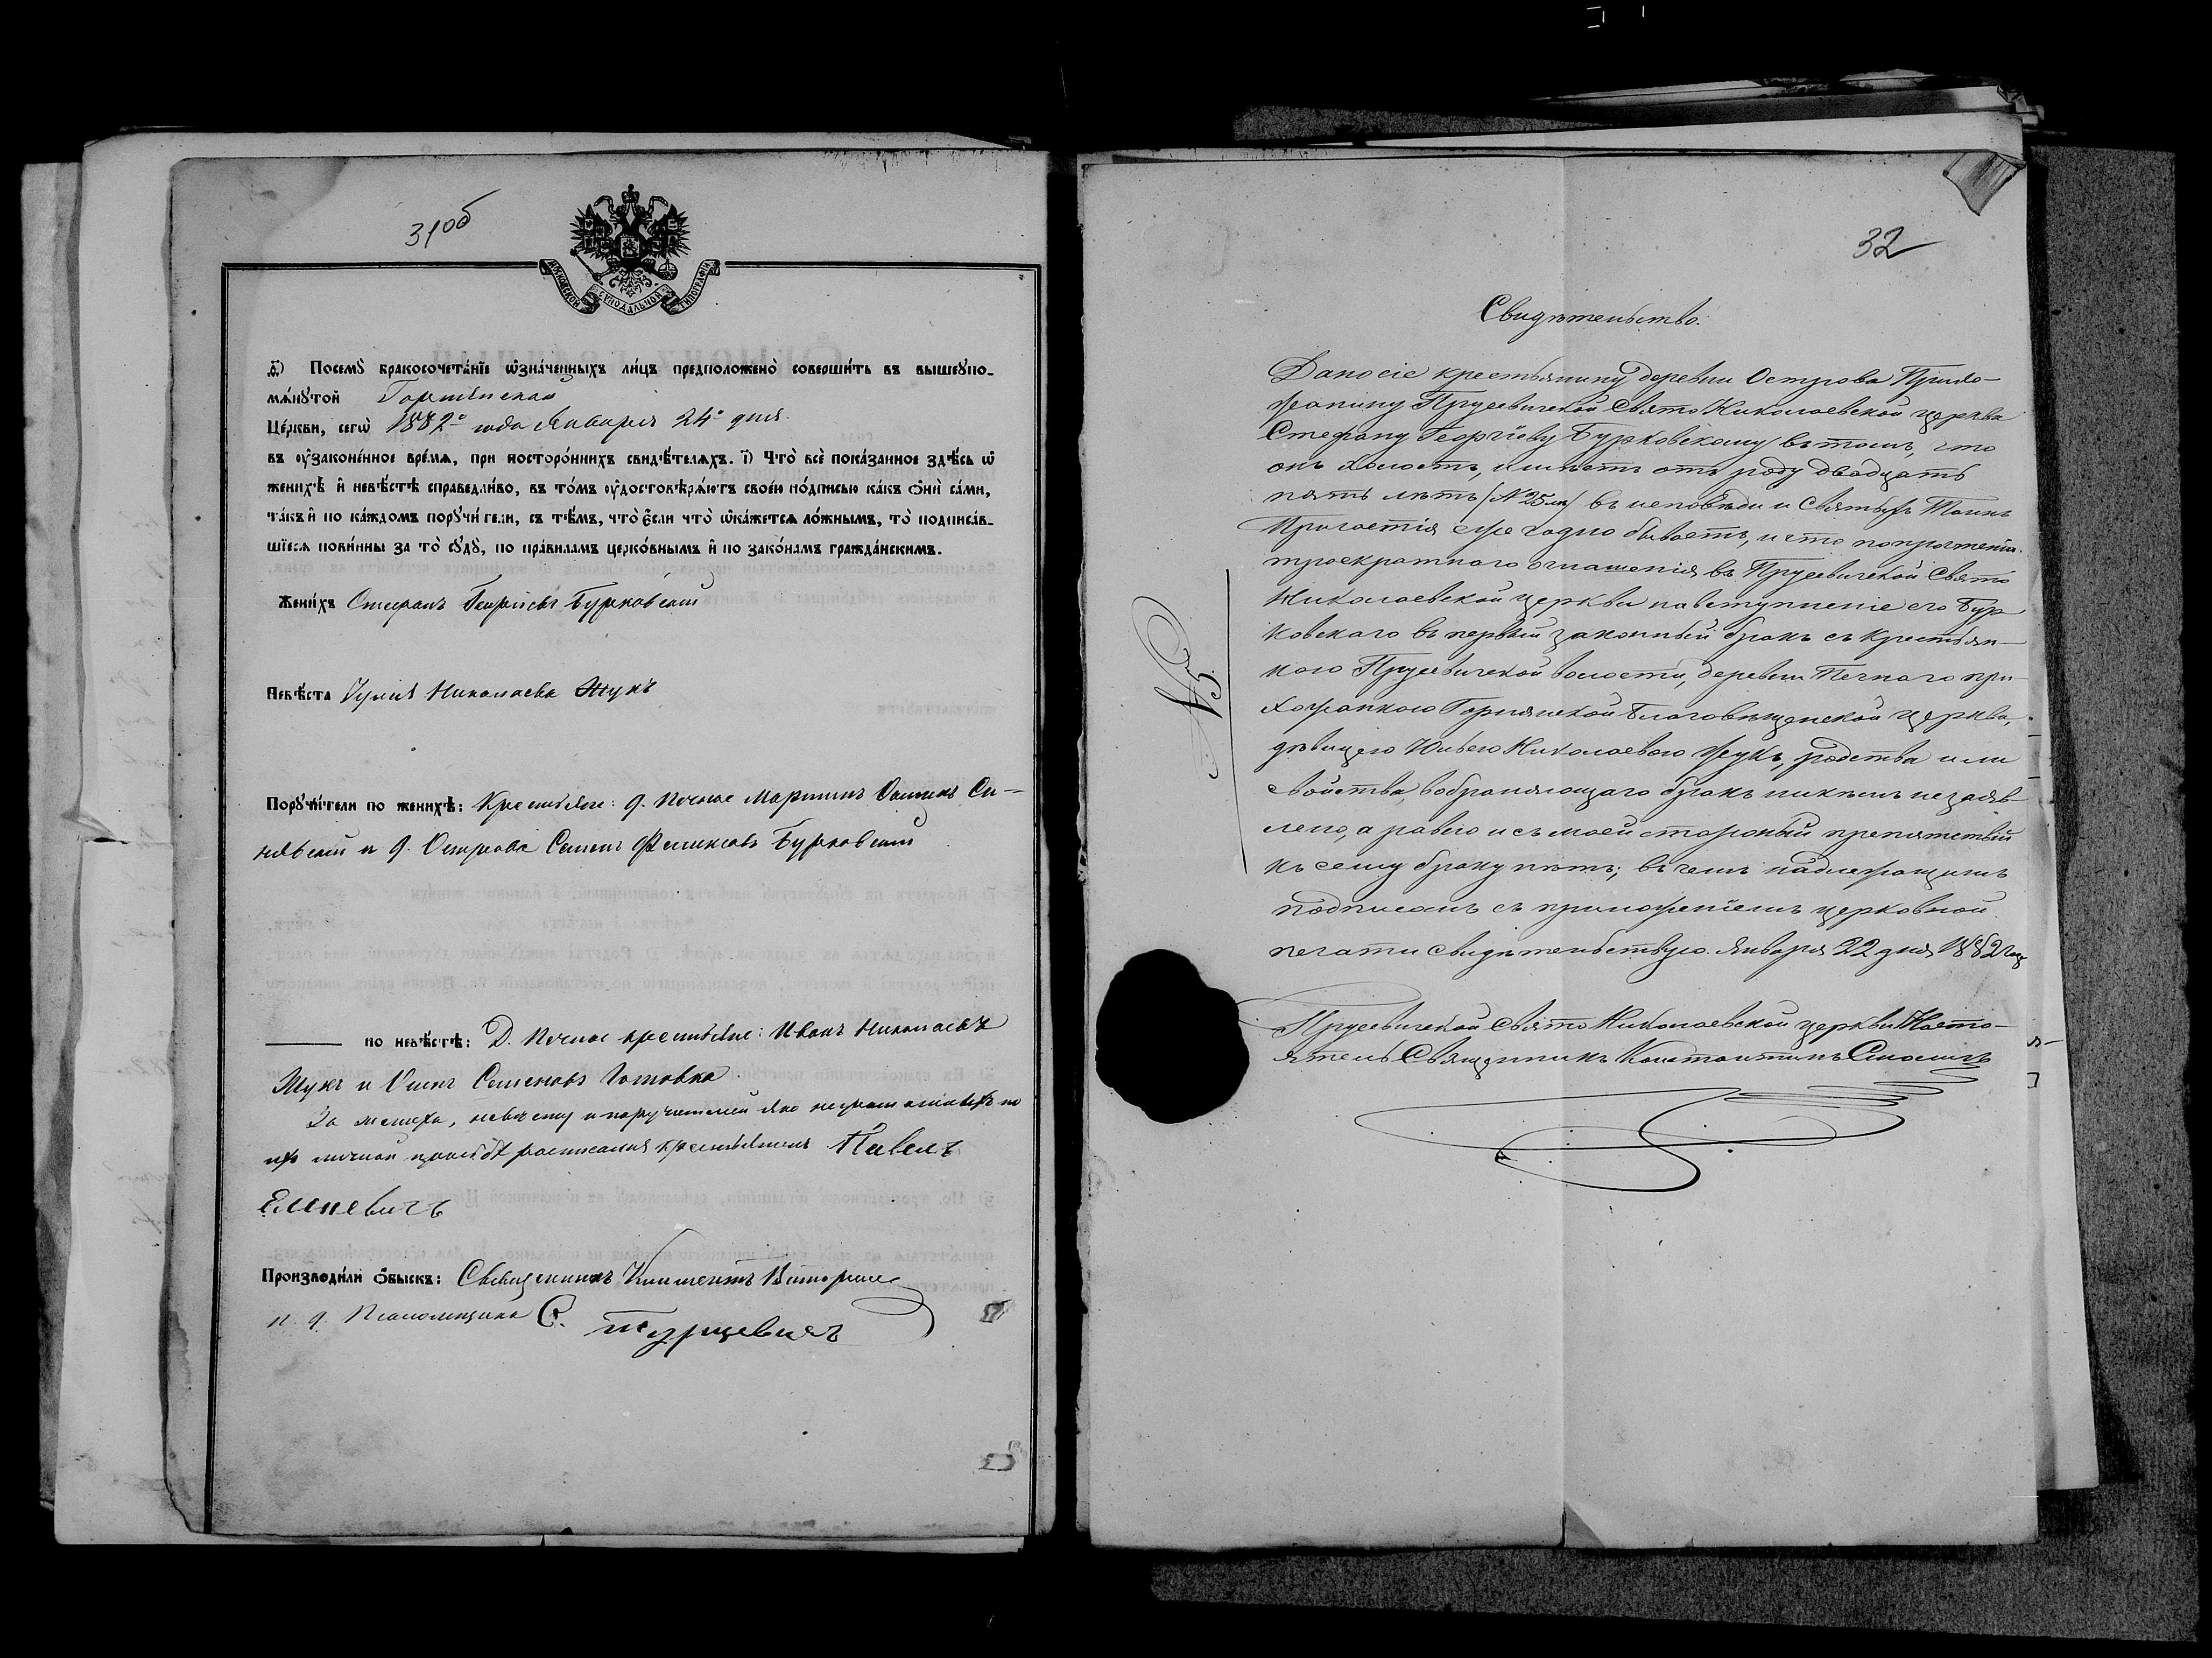 31об
МОСКОВСКОЙ СѴНОДАЛЬНОЙ ТИПОГРАФІИ
д҃) Посемꙋ̀ бракосочета́нїе ѡ҆зна́ченныхъ ли́цъ предположено̀ соверши́ть въ вышеꙋпо-
мѧ́нꙋтой
Це́ркви, сегѡ̀ 1882го года Января 24го дня.
въ ᲂу҆зако́не́нное вре́мѧ, при посторо́ннихъ свидѣ́телѧхъ. і҃) Что̀ всѐ пока́занное здѣ́сь ѡ҆
женихѣ̀ и҆ невѣ́стѣ справедли́во, въ то́мъ ᲂу҆достовѣрѧ́ютъ свое́ю по́дписью ка́къ ѻ҆нѝ са́ми,
та́къ и҆ по ка́ждомъ порꙋчи́тели, съ тѣ́мъ, что̀ є҆́сли что̀ ѡ҆ка́жетсѧ ло́жнымъ, то̀ подписа́в-
шїесѧ пови́нны за то̀ сꙋдꙋ̀, по пра́виламъ церко́внымъ и҆ по зако́намъ гражда́нскимъ.
Жени́хъ Стефанъ Георгіевъ Бурковскій
Невѣ́ста Іулія Николаева Жукъ
Порꙋчи́тели по женихѣ̀: Крестьяне: д. Почное Мартинъ
и д. Острова Семенъ Феликсовъ Бурковскій
по невѣ́стѣ: Д. Почное крестьяне: Иванъ Николаевъ
Жукъ и Семеновъ Головко
За жениха, невѣсту и поручителей яко неграмотныхъ по
ихъ личной прозьбѣ росписался крестьянинъ Павелъ
Производи́ли ѻ҆́быскъ: Священникъ Климентъ
и. д. Псаломщика С. Турцевичъ
32
Свидѣтельство.
Дано сіе крестьянину деревни Острова Прихо-
жанину Прусевичской Свято Николаевской церкви
Стефану Георгіеву Бурковскому въ томъ, что
онъ холостъ, имѣетъ отъ роду двадцать
пять лѣтъ (№ 25 лѣт) въ исповѣди и Святыхъ Таинъ
Причастія ежегодно бываетъ, и что по прочтеніи
троекратнаго оглашенія въ Прусевичской Свято
Николаевской церкви на вступленіе его Бур
ковскаго въ первый законный бракъ съ крестьян-
кою Прусевичской волости, деревни Печного при
хожанкою Горнянской Благовѣщенской церкви,
дѣвицею Юліею Николаевою Жукъ, родства или
свойства, возбраняющаго бракъ никѣмъ не заяв-
лено, а равно и съ моей стороны препятствій
къ сему браку нѣтъ; въ чемъ надлежащимъ
подписомъ съ приложеніемъ церковной
печати свидѣтельствую. Января 22 дня 1882 года
№ 5.
Прусевичской Свято Николаевской церкви Насто-
ятель Священникъ Константинъ